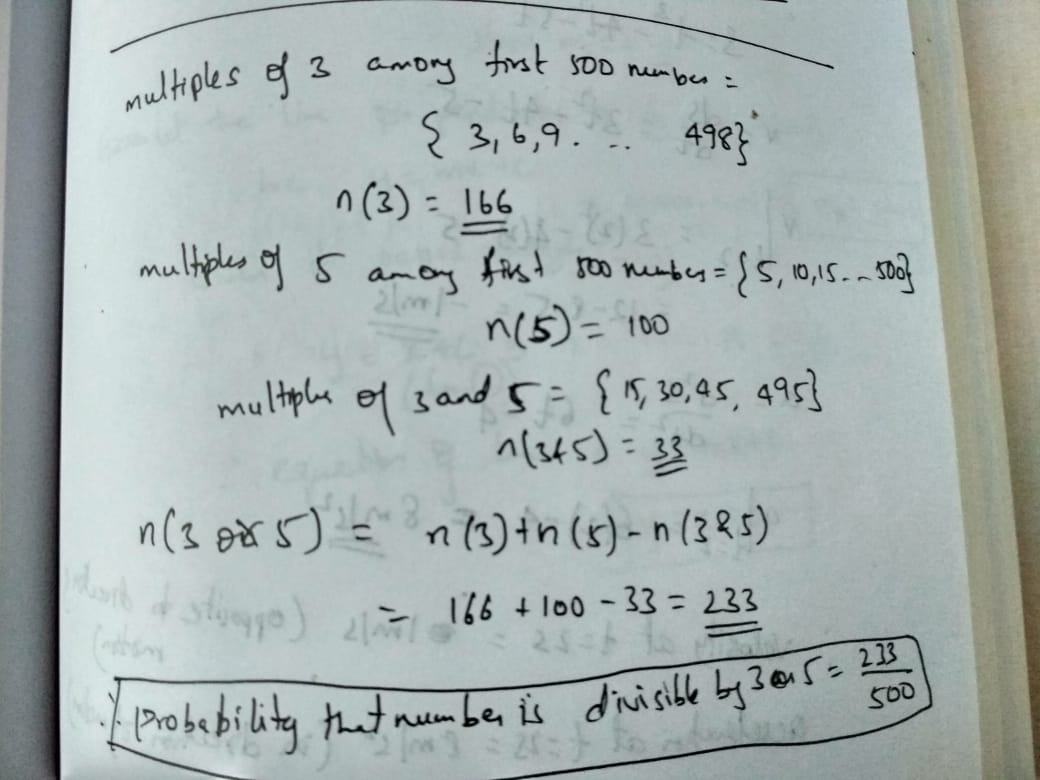 multiples of 3 among first 500 number =
{ 3, 6, 9. .. 498}
n(3) = 166
multiples of 5 among first 500 numbers = { 5, 10, 15 - - 500}
n(5) = 100
multiples of 3 and 5 = { 15, 30, 45, 495}
n(3&5) = 33
n(3 or 5) = n(3) + n(5) - n(3&5)
= 166 + 100 - 33 = 233
Probability that number is divisible by 3 or 5 = 233/500